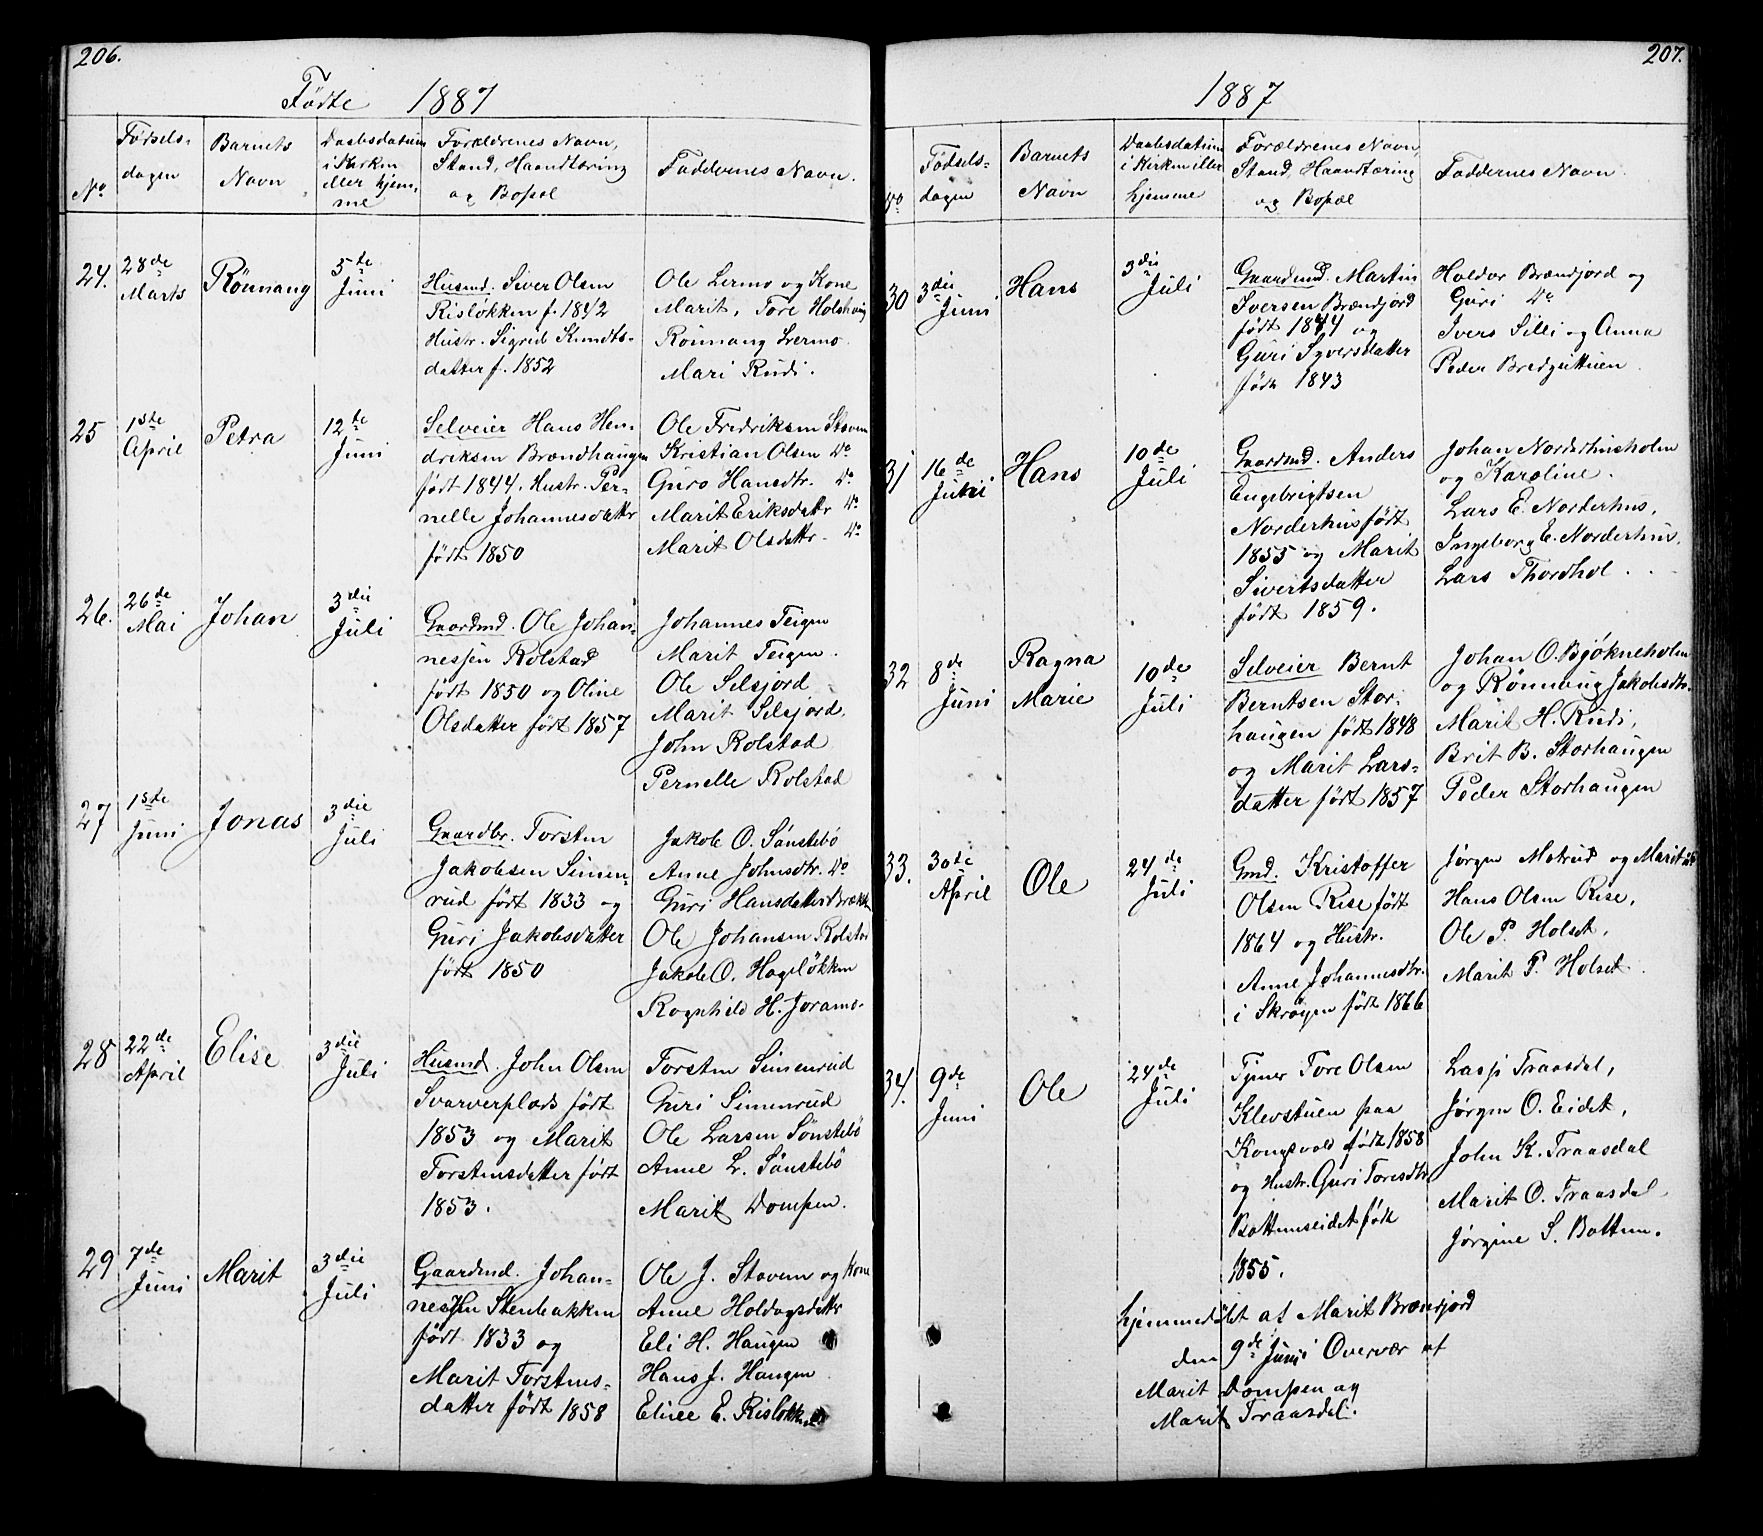 206.
Födte 1887
No.
Födsels-
dagen
Barnets
Navn
Daabsdatum
i Kirken
eller hjem-
me
Forældrenes Navn,
Stand, Haandtæring
og Bopæl
Faddernes Navn.
24.
28de
Marts
Rönnaug
5te
Juni
Husmd. Siver Olsen
Risløkken f. 1842
Hustr. Sigrid Knudts-
datter f. 1852
Ole Lermo og Kone
Marit, Tore Holshaug
Rönnaug Lermo.
Mari Rudi.
25
1ste
April
Petra
12te
Juni
Selveier Hans Hen-
driksen Brændhaugen
født 1844. Hustr. Per-
nelle Johannesdattr
født 1850
Ole Fredriksen Stavem
Kristian Olsen Do
Guro Hansdtr. Do
Marit Eriksdattr Do
Marit Olsdattr. Do
26.
26de
Mai
Johan
3die
Juli
Gaardmd. Ole Johan-
nessen Rolstad
født 1850 og Oline
Olsdatter født 1857
Johannes Teigen
Marit Teigen.
Ole Selsjord
Marit Selsjord.
John Rolstad
Pernelle Rolstad
27
1ste
Juni
Jonas
3die
Juli
Gaardbr. Torsten
Jakobsen Simen-
rud født 1833 og
Guri Jakobsdatter
født 1850
Jakob O. Sönstebö
Anne Johnsdtr. Do
Guri Hansdatter Brække
Ole Johansen Rolstad
Jakob O. Hageløkken
Rognhild H. Jorams-
28
22de
April
Elise
3die
Juli
Husmd. John Olsen
Svarverplads født
1853 og Marit
Torstensdatter født
1853.
Torsten Simenrud
Guri Simenrud
Ole Larsen Sönstebö
Anne L. Sönstebö
Marit Dompen.
29
7de
Juni
Marit
3die
Juli
Gaardmd. Johan-
nes Jen Stenbakken
født 1833 og
Marit Torstens-
datter født 1858
Ole J. Stavem og Kone
Anne Holdogsdattr
Eli H. Haugen
Hans J. Haugen
Elisee E. Risløkken
207.
1887
No
Födsels-
dagen
Barnets
Navn
Daabsdatum
i Kirken eller
hjemme
Forældrenes Navn,
Stand, Haandtæring
og Bopæl
Faddernes Navn.
30
3die
Juni
Hans
3die
Juli
Gaardmd. Martin
Iversen Brændjord
født 1844 og
Guri Syversdatter
født 1843
Holdor Brændjord og
Guri Do
Ivers Silli og Anna
Peder Bredguttuen
31
16de
Juni
Hans
10de
Juli
Gaardmd. Anders
Engebrigtsen
Norderhus født
1855 og Marit
Sivertsdatter
født 1859.
Johan Norderhusholm
og Karoline.
Lars E. Norderhus.
Ingeborg E. Norderhus.
Lars Thordhol.
32
8de
Juni
Ragna
Marie
10de
Juli
Selveier Bernt
Berntsen Stor-
haugen født 1848
og Marit Lars-
datter født 1857
Johan O. Bjøkneholen
og Rønnaug Jakobsdtr.
Marit H. Rudi,
Brit B. Storhaugen
Peder Storhaugen
33.
30te
April
Ole
24de
Juli
Gmd. Kristoffer
Olsen Rise født
1864 og Hustr.
Anne Johannesdtr.
i Skrøgen født 1866
Jørgen Motrud og Marit
Hans Olsen Rise,
Ole P. Holset,
Marit P. Holset.
34.
9de
Juni
Ole
24de
Juli
Tjener Tore Olsen
Klevstuen paa
Kongsvold født 1858
og Hustr. Guri Toresdtr
Bottemseidet født
1855.
Lasse Traasdal,
Jørgen O. Eidet,
John K. Traasdal
Marit O. Traasdal.
Jørgine S. Bottem.
hjemmedöbt af Marit Brændjord
den 9de Juni i Overvær af
Marit Dompen og
Marit Traasdal.